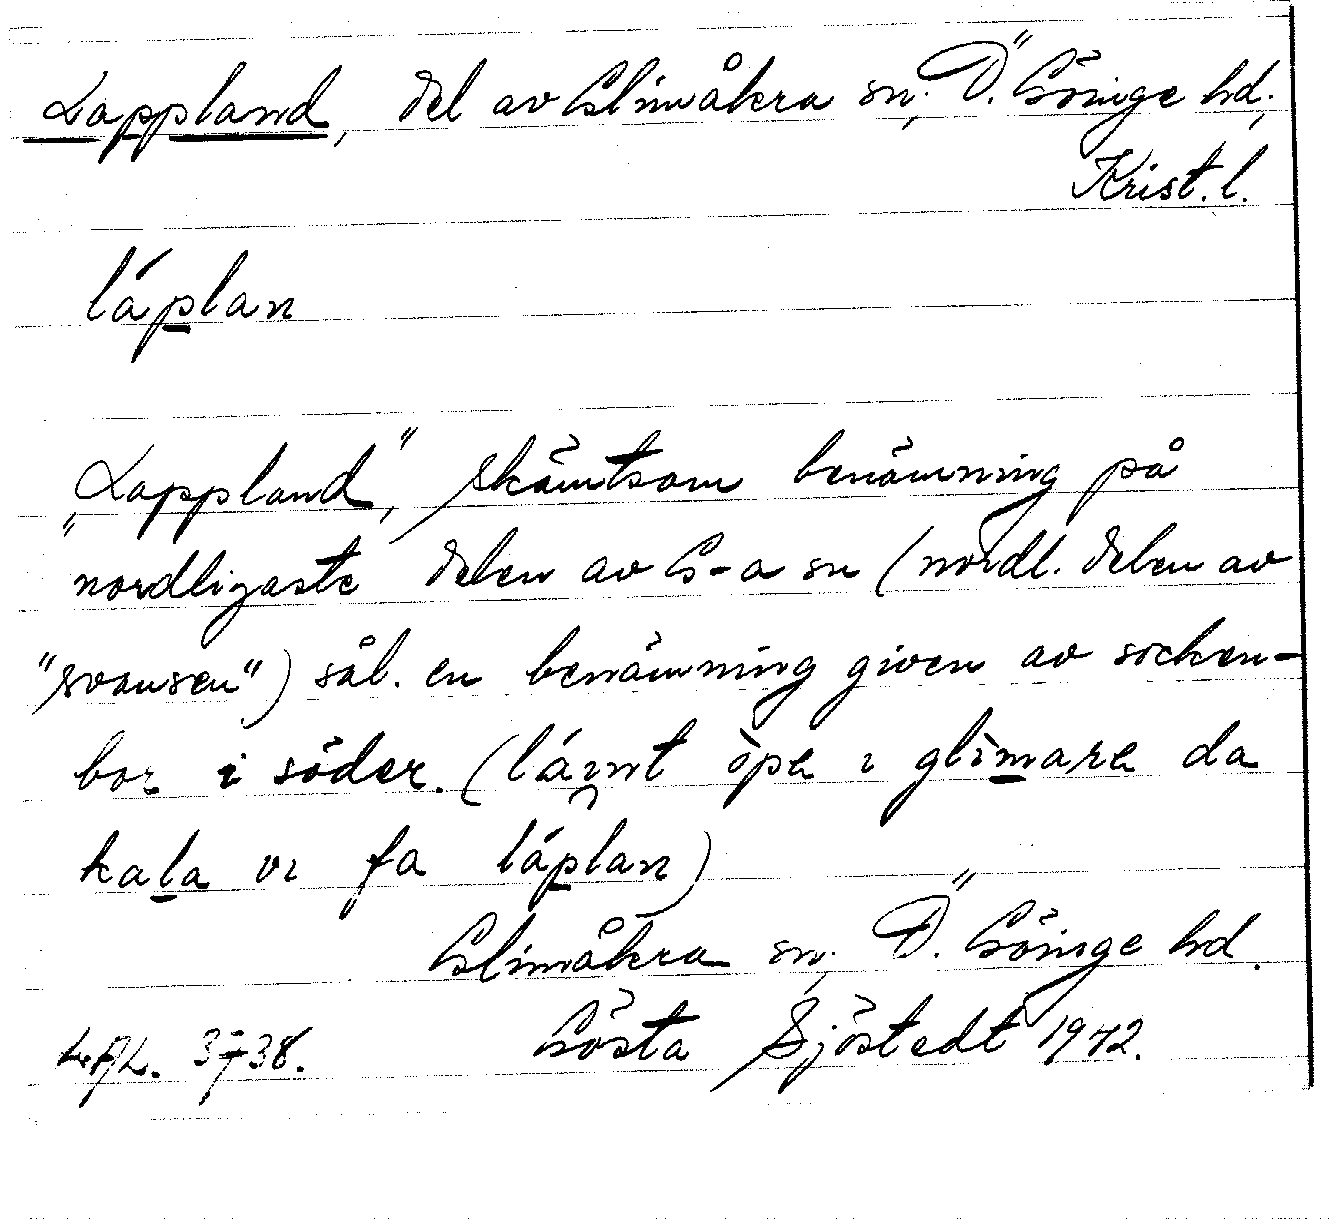 Lappland, del av Glimåkra sn, Ö. Göinge hd,
Krist. l.
láplan
"Lappland", skämtsam benämning på
nordligaste delen av G-a sn (nordl. delen av
"svansen") sål. en benämning given av socken-
bor i söder. (láınt òpa ı glìmara da
kala vı fa láplan)
Glimåkra sn, Ö. Göinge hd.
Gösta Sjöstedt 1942.
3738.